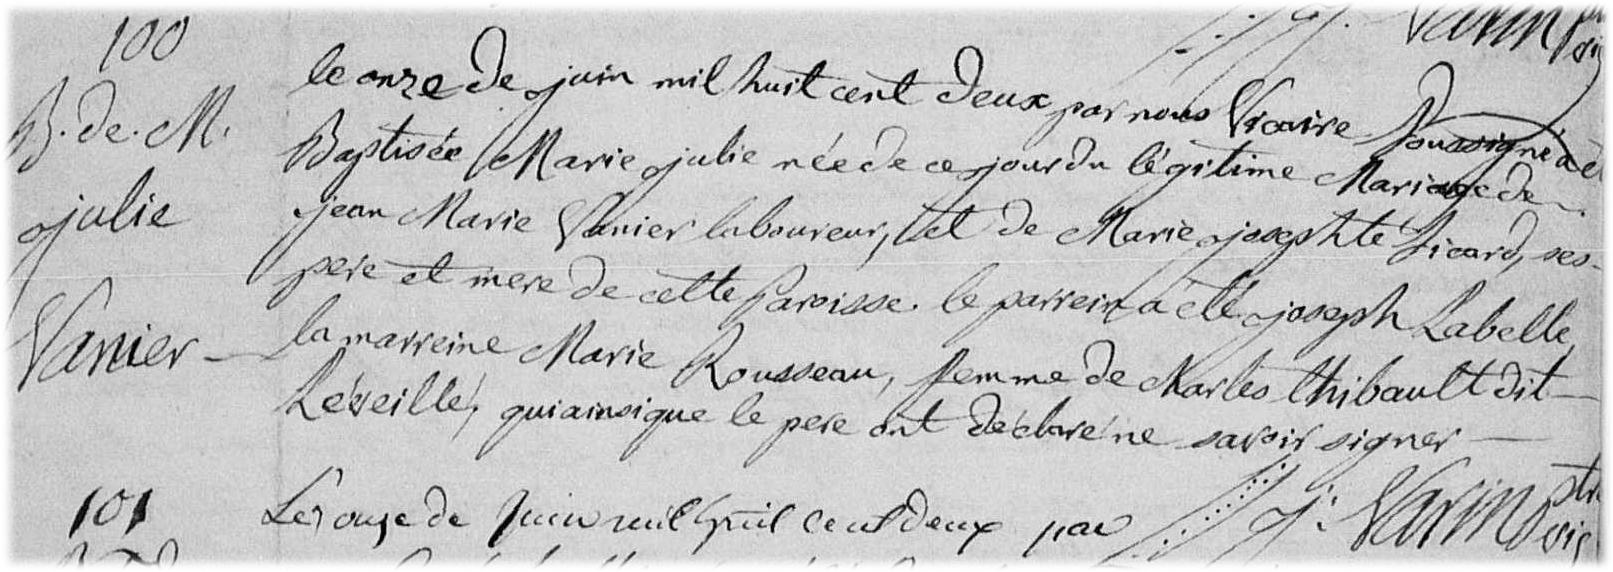 Varin
100
B. de. M.
julie
Vanier
le onze de juin mil huit cent deux par nous Vicaire Soussigné a été
Baptisée Marie julie née de ce jour du légitime Mariage de
jean Marie Vanier laboureur, et de Marie josephte Sicard, ses
pere et mere de cette Paroisse. le parrein a été joseph Labelle
la marreine Marie Rousseau, femme de Charles thibault dit
Léveillé, qui ainsi que le pere ont déclaré ne savoir signer
J: Varin ptre
101
Le onze de Juin mil huit cent deux par